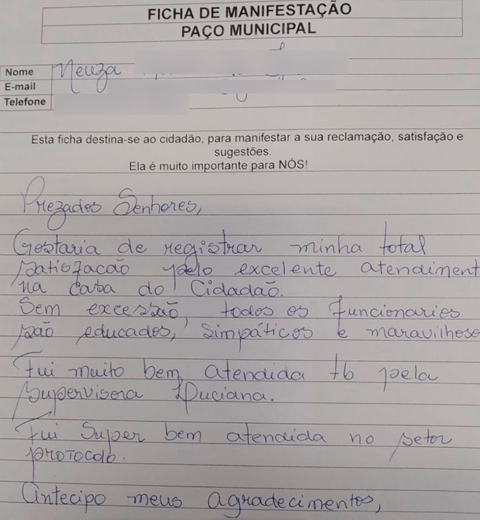 FICHA DE MANIFESTAÇÃO
PAÇO MUNICIPAL
Nome Neuza
E-mail
Telefone
Esta ficha destina-se ao cidadão, para manifestar a sua reclamação, satisfação e
sugestões.
Ela é muito importante para NÓS!
Prezados Senhores,
Gostaria de registrar minha total
satisfacão pelo excelente atendiment
na Casa do Cidadão.
Sem excessão, todos os Funcionarios
são educados, simpáticos e maravilhoso
Fui muito bem atendida tb pela
Supervisora Luciana.
Fui Super bem atendida no setor
protocolo.
Antecipo meus agradecimentos,